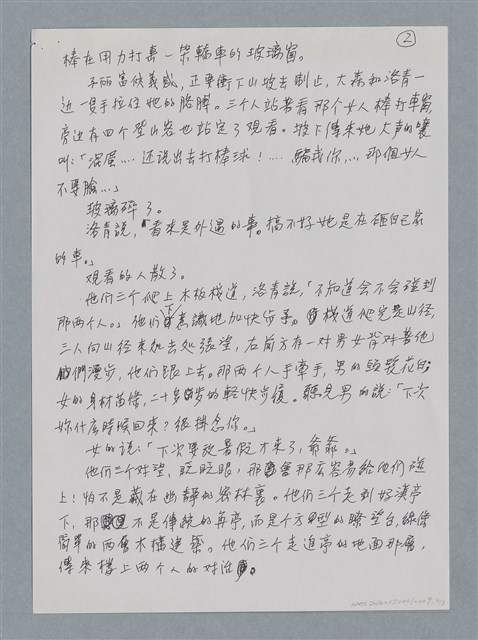 ②
棒在用力打轟一架轎車的玻璃窗。
不丽富俠義感,正要衝下山坡去制止,大森和洛青一
近一隻手拉住她的胳膊。三個人站著看那个女人棒打車窗,
旁边有四个登山客也站定了观看。坡下傳來她大声的嚷
叫:「混蛋....还說出去打棒球!....騙我你,...那個女人
不要臉...」
玻璃碎了。
洛青說,「看來是外遇的事。搞不好她是在砸自己家
的車。」
观看的人散了。
他們三个爬上木板棧道,洛青說,「不知道会不会碰到
那两个人。」他們下意識地加快步子。棧道爬完是山徑,
三人向山徑來处去处張望,右前方有一对男女背对著他
們漫步,他們跟上去。那两个人手牽手,男的頭髮花白,
女的身材苗條,二十多歲的輕快步履。聽見男的說:「下次
妳什麼時候回來?很掛念你。」
女的說:「下次要放暑假才來了,爺爺。」
他們三个对望,眨眨眼,那會那広容易給他們碰
上!怕不是藏在幽靜的密林裏。他們三个走到好漢亭
下,那不是傳統的角亭,而是个方型的瞭望台,線條
簡單的两層木構建築。他們三个走進亭的地面那層,
傳來樓上两个人的对话。